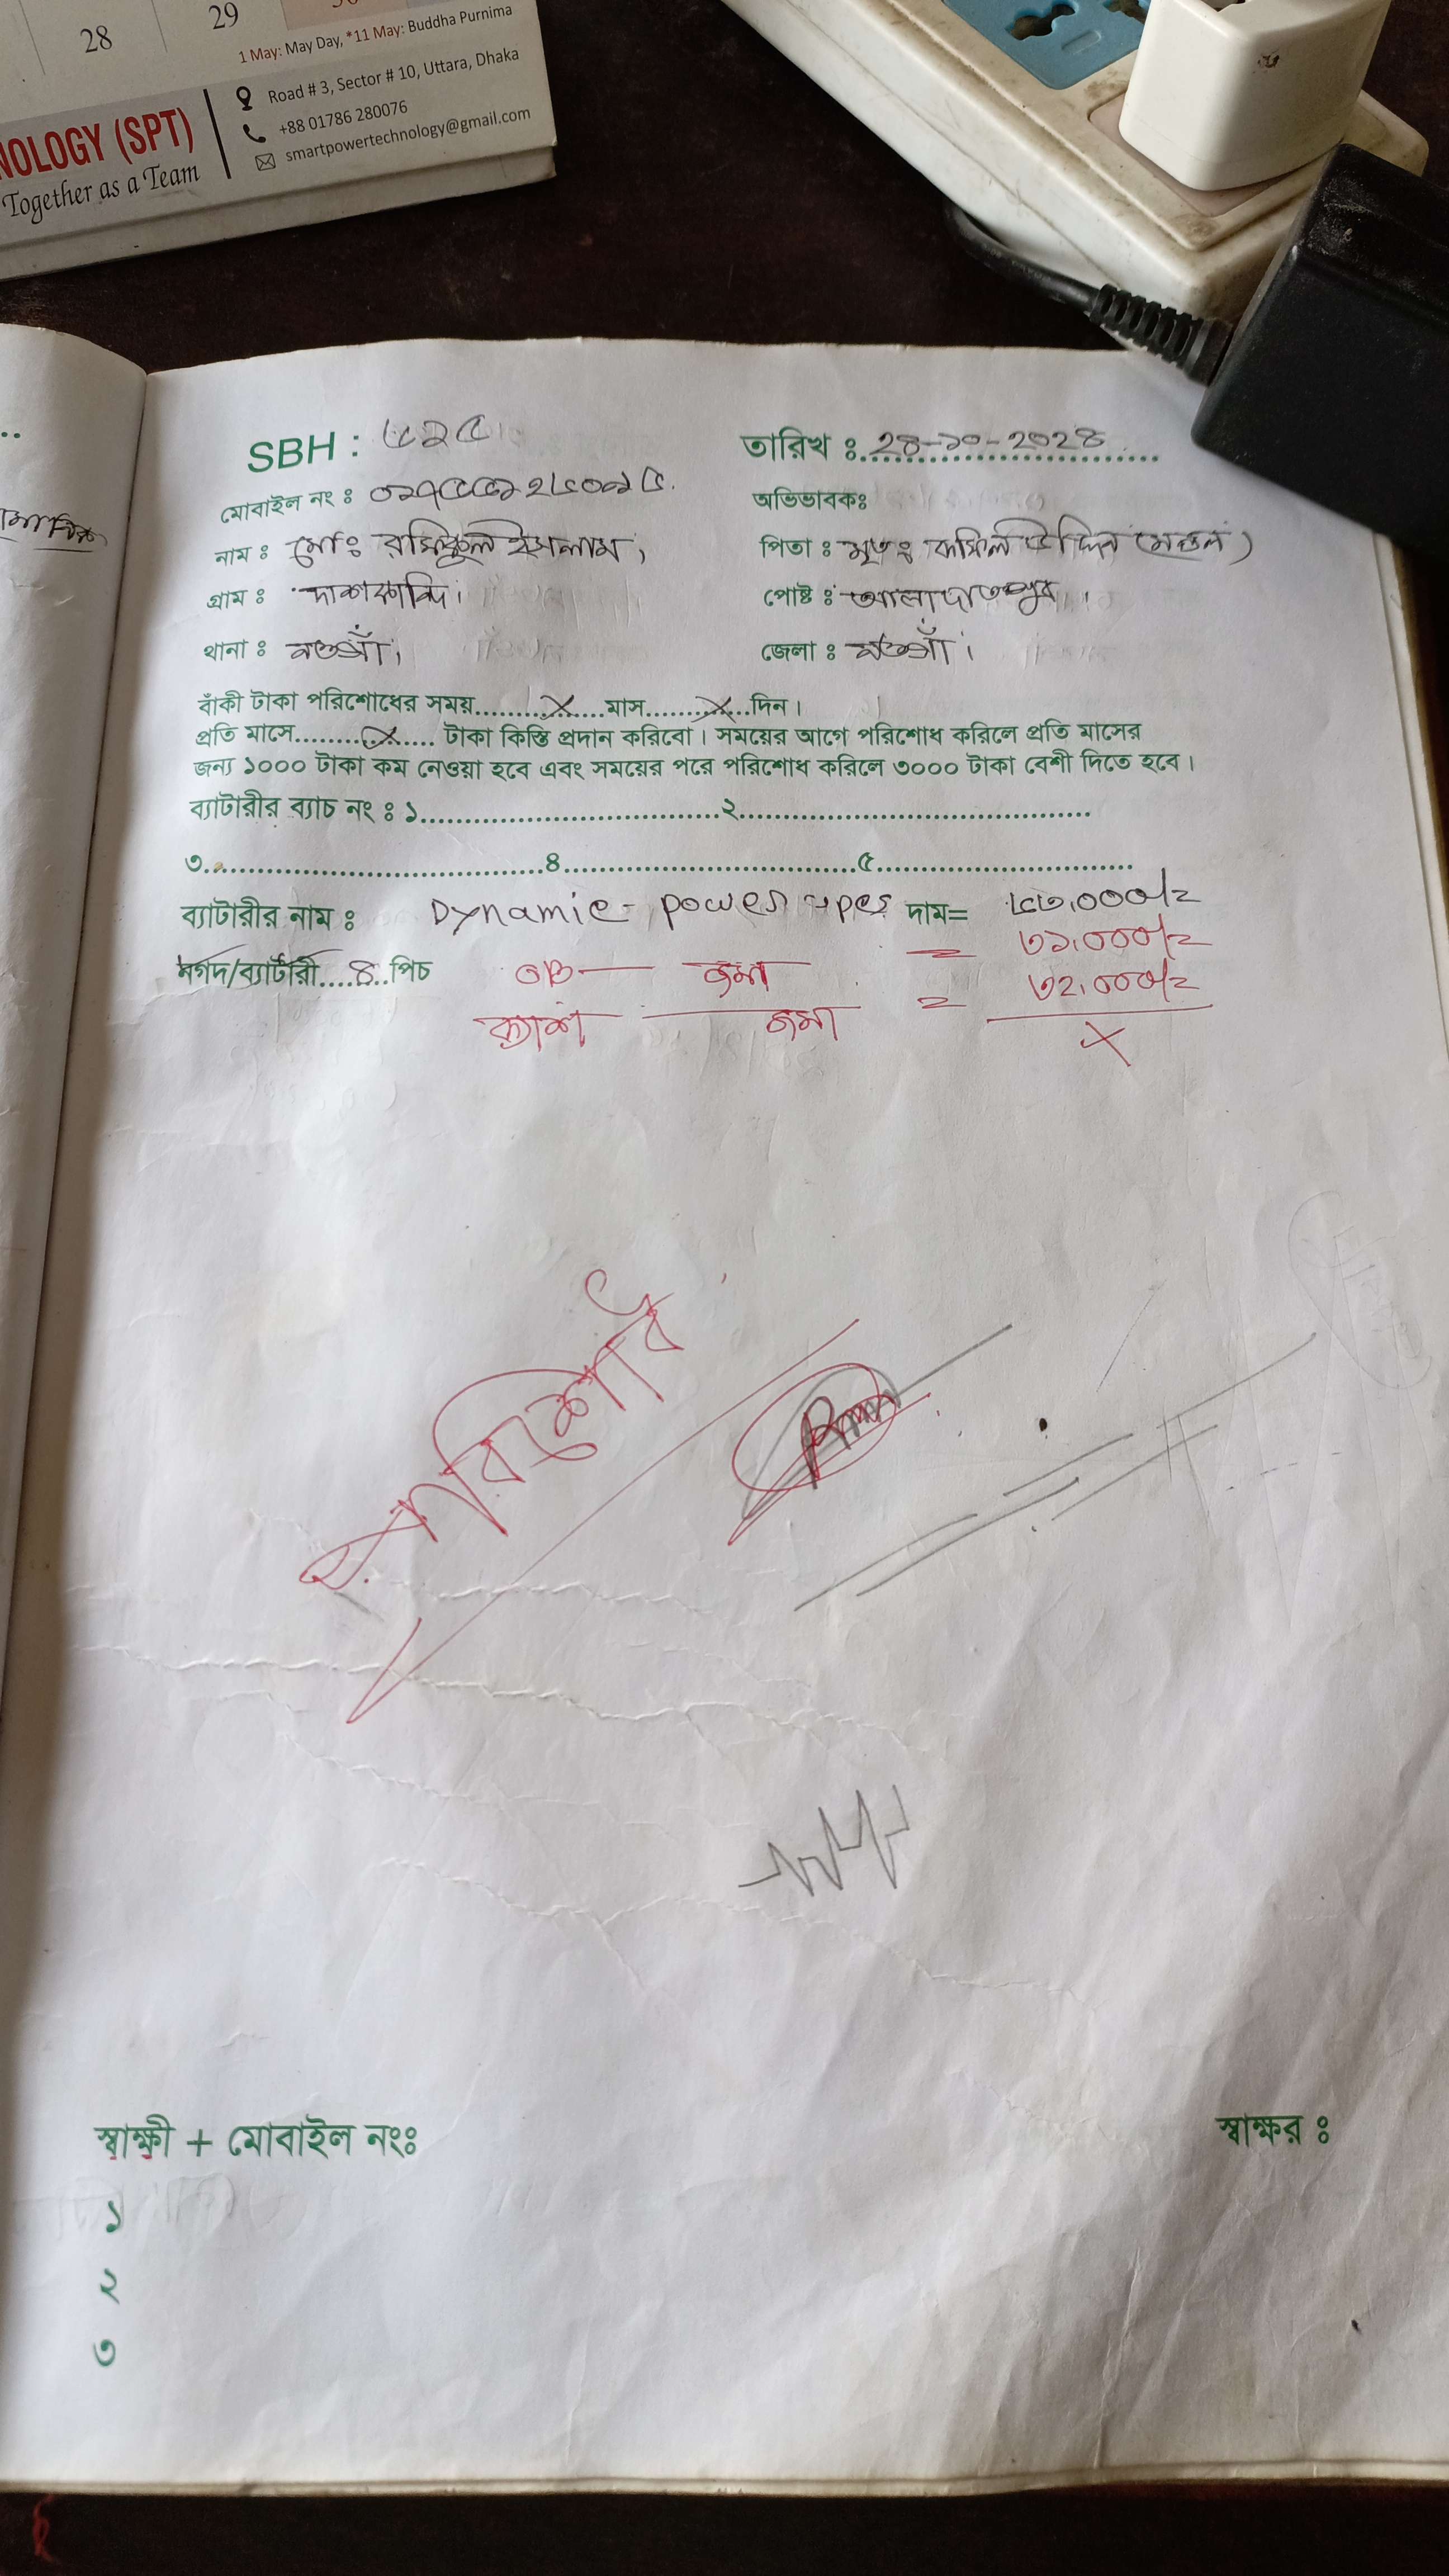 28 29 30
1 May: May Day, *11 May: Buddha Purnima
NOLOGY (SPT)
Together as a Team
Road # 3, Sector # 10, Uttara, Dhaka
+88 01786 280076
smartpowertechnology@gmail.com
SBH : ৬২৫
তারিখ ঃ 28-১০-২০২৪
মোবাইল নং ঃ
অভিভাবকঃ
নাম ঃ মোঃ রফিকুল ইসলাম,
পিতা ঃ মৃতঃ উদ্দিন (মন্ডল)
গ্রাম ঃ
পোষ্ট ঃ
থানা ঃ নওগাঁ।
জেলা ঃ নওগাঁ।
বাঁকী টাকা পরিশোধের সময়.........X......মাস........X...দিন।
প্রতি মাসে.........X..... টাকা কিস্তি প্রদান করিবো। সময়ের আগে পরিশোধ করিলে প্রতি মাসের
জন্য ১০০০ টাকা কম নেওয়া হবে এবং সময়ের পরে পরিশোধ করিলে ৩০০০ টাকা বেশী দিতে হবে।
ব্যাটারীর ব্যাচ নং ঃ ১..............................২..............................
৩..............................৪..............................৫..............................
ব্যাটারীর নাম ঃ Dynamic - power দাম= ৬৩,০০০/=
নগদ/ব্যাটারী....৪..পিচ OB — জমা = ৩১,০০০/=
ক্যাশ — জমা = ৩২,০০০/=
X
পরিশোধ
স্বাক্ষী + মোবাইল নংঃ
স্বাক্ষর ঃ
১
২
৩